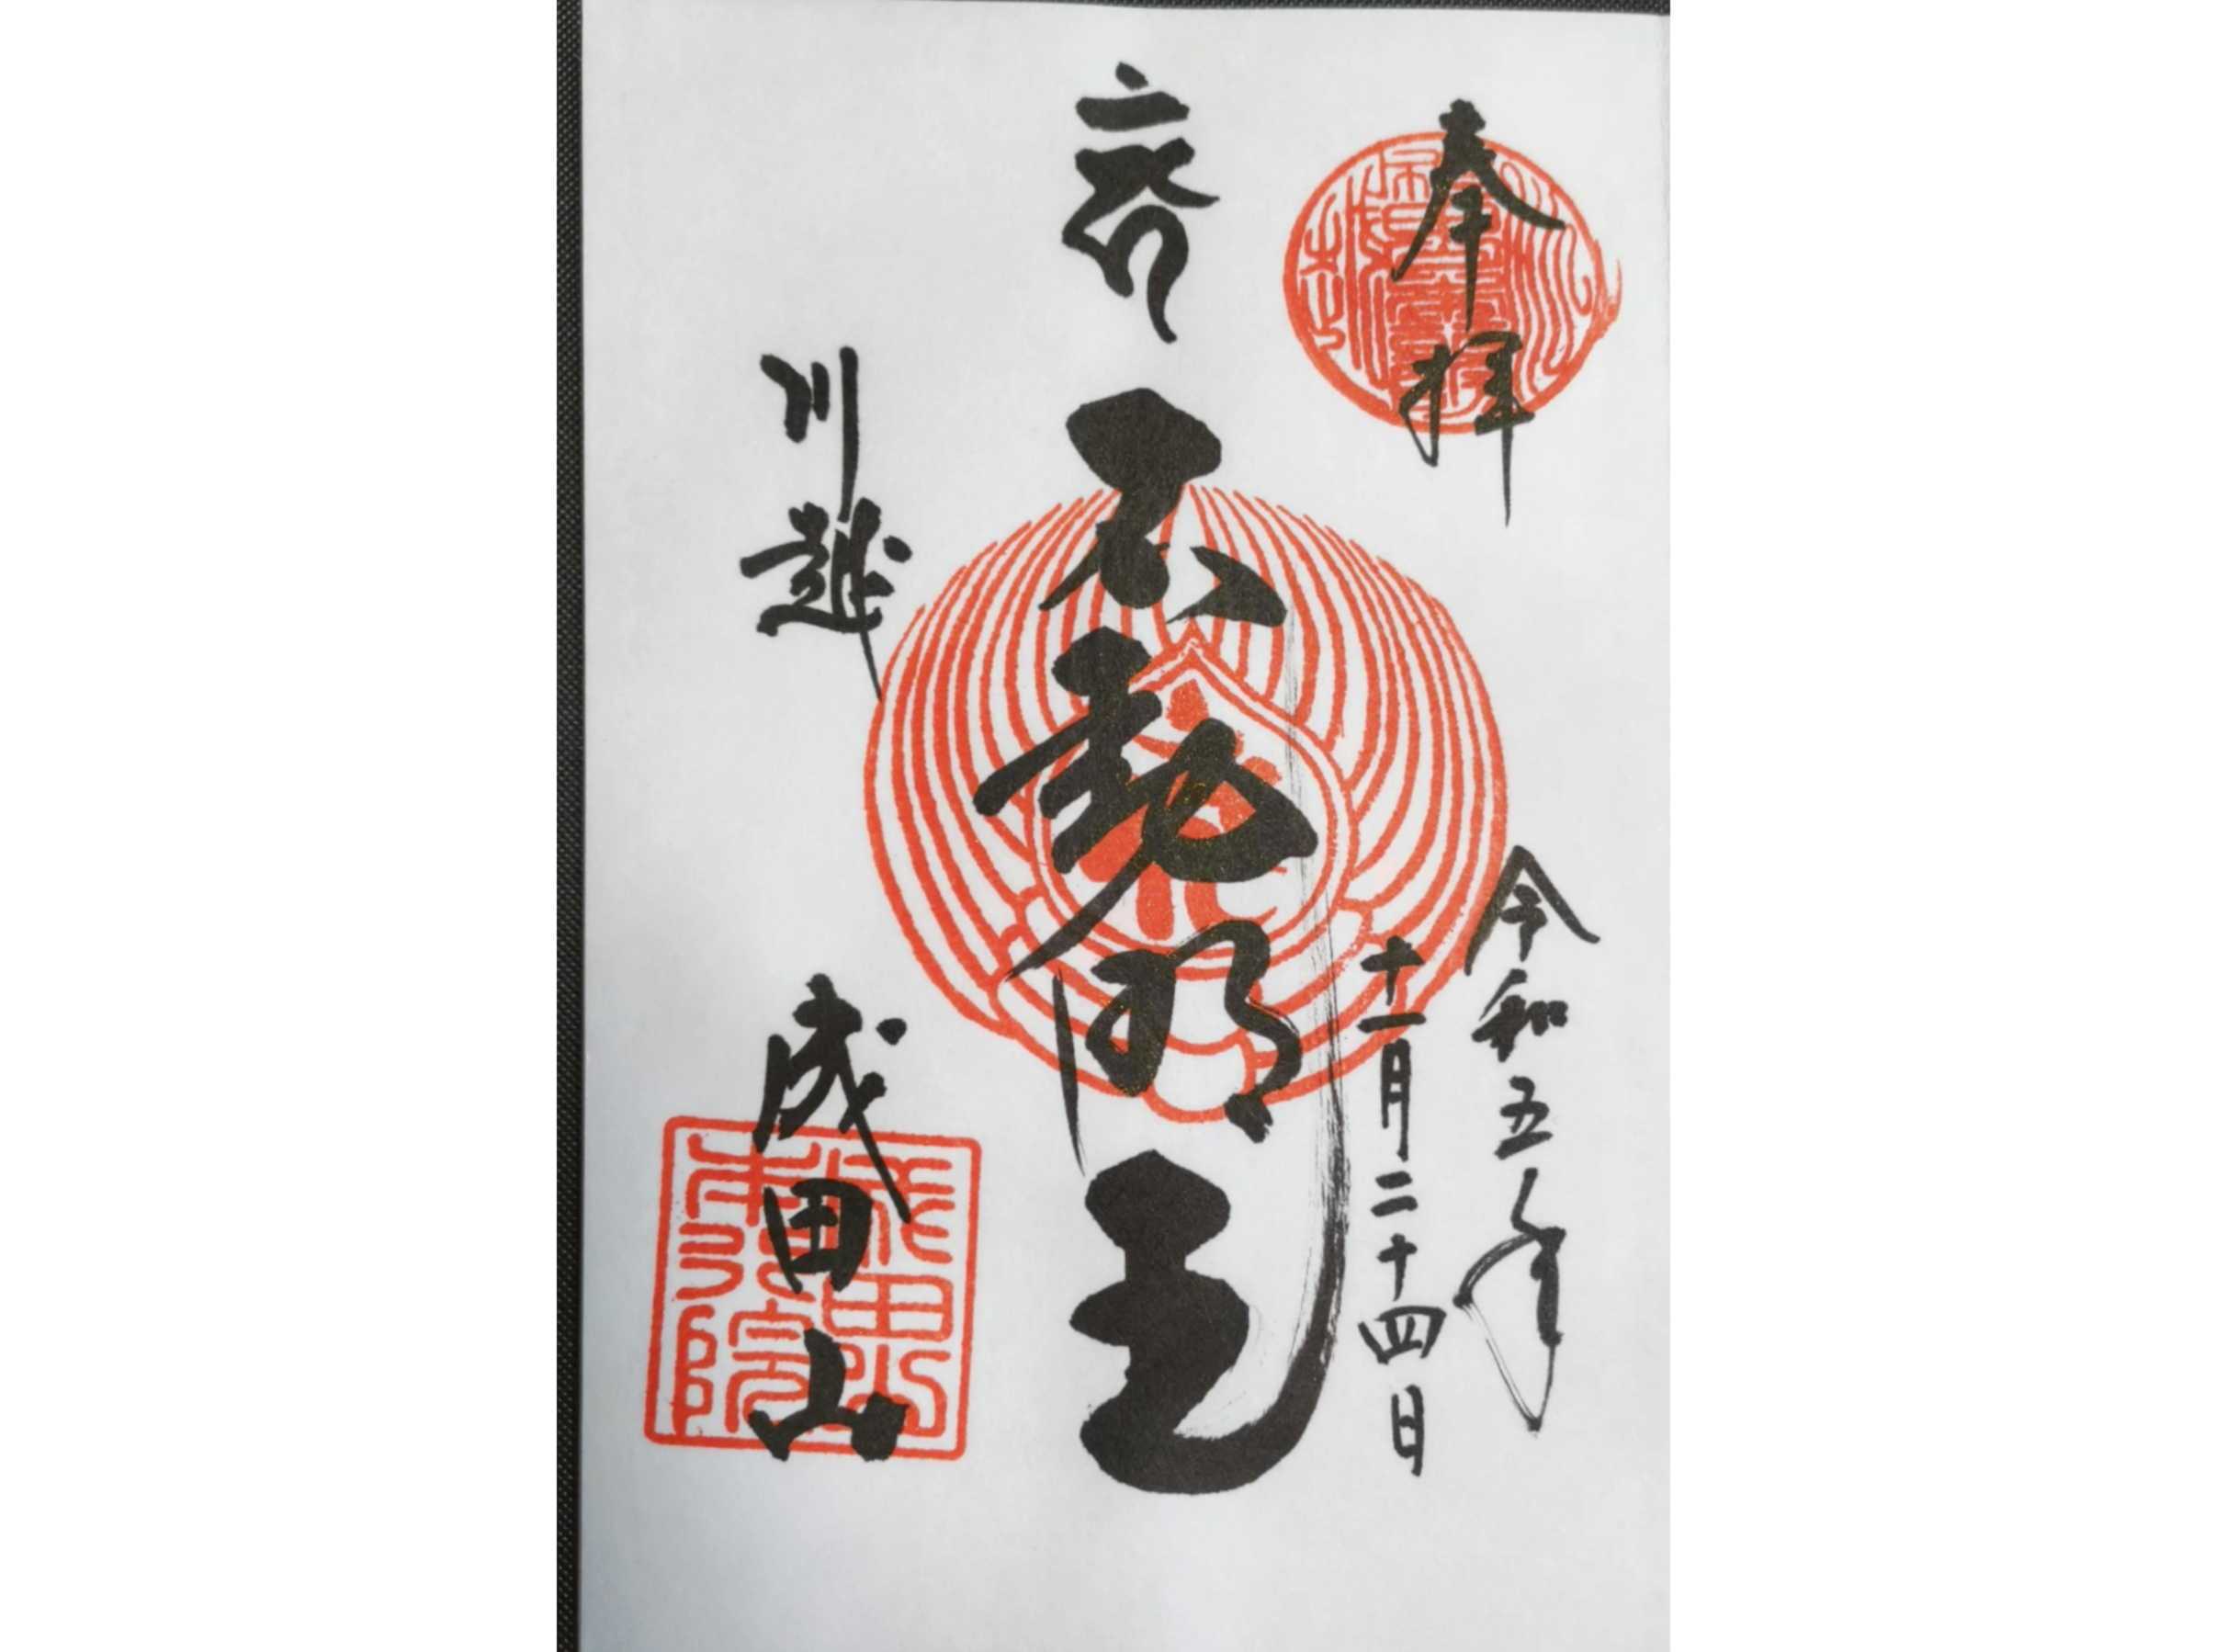 奉拝
令和五年
十一月二十四日
不動明王
川越
成田山
成田山
本行院